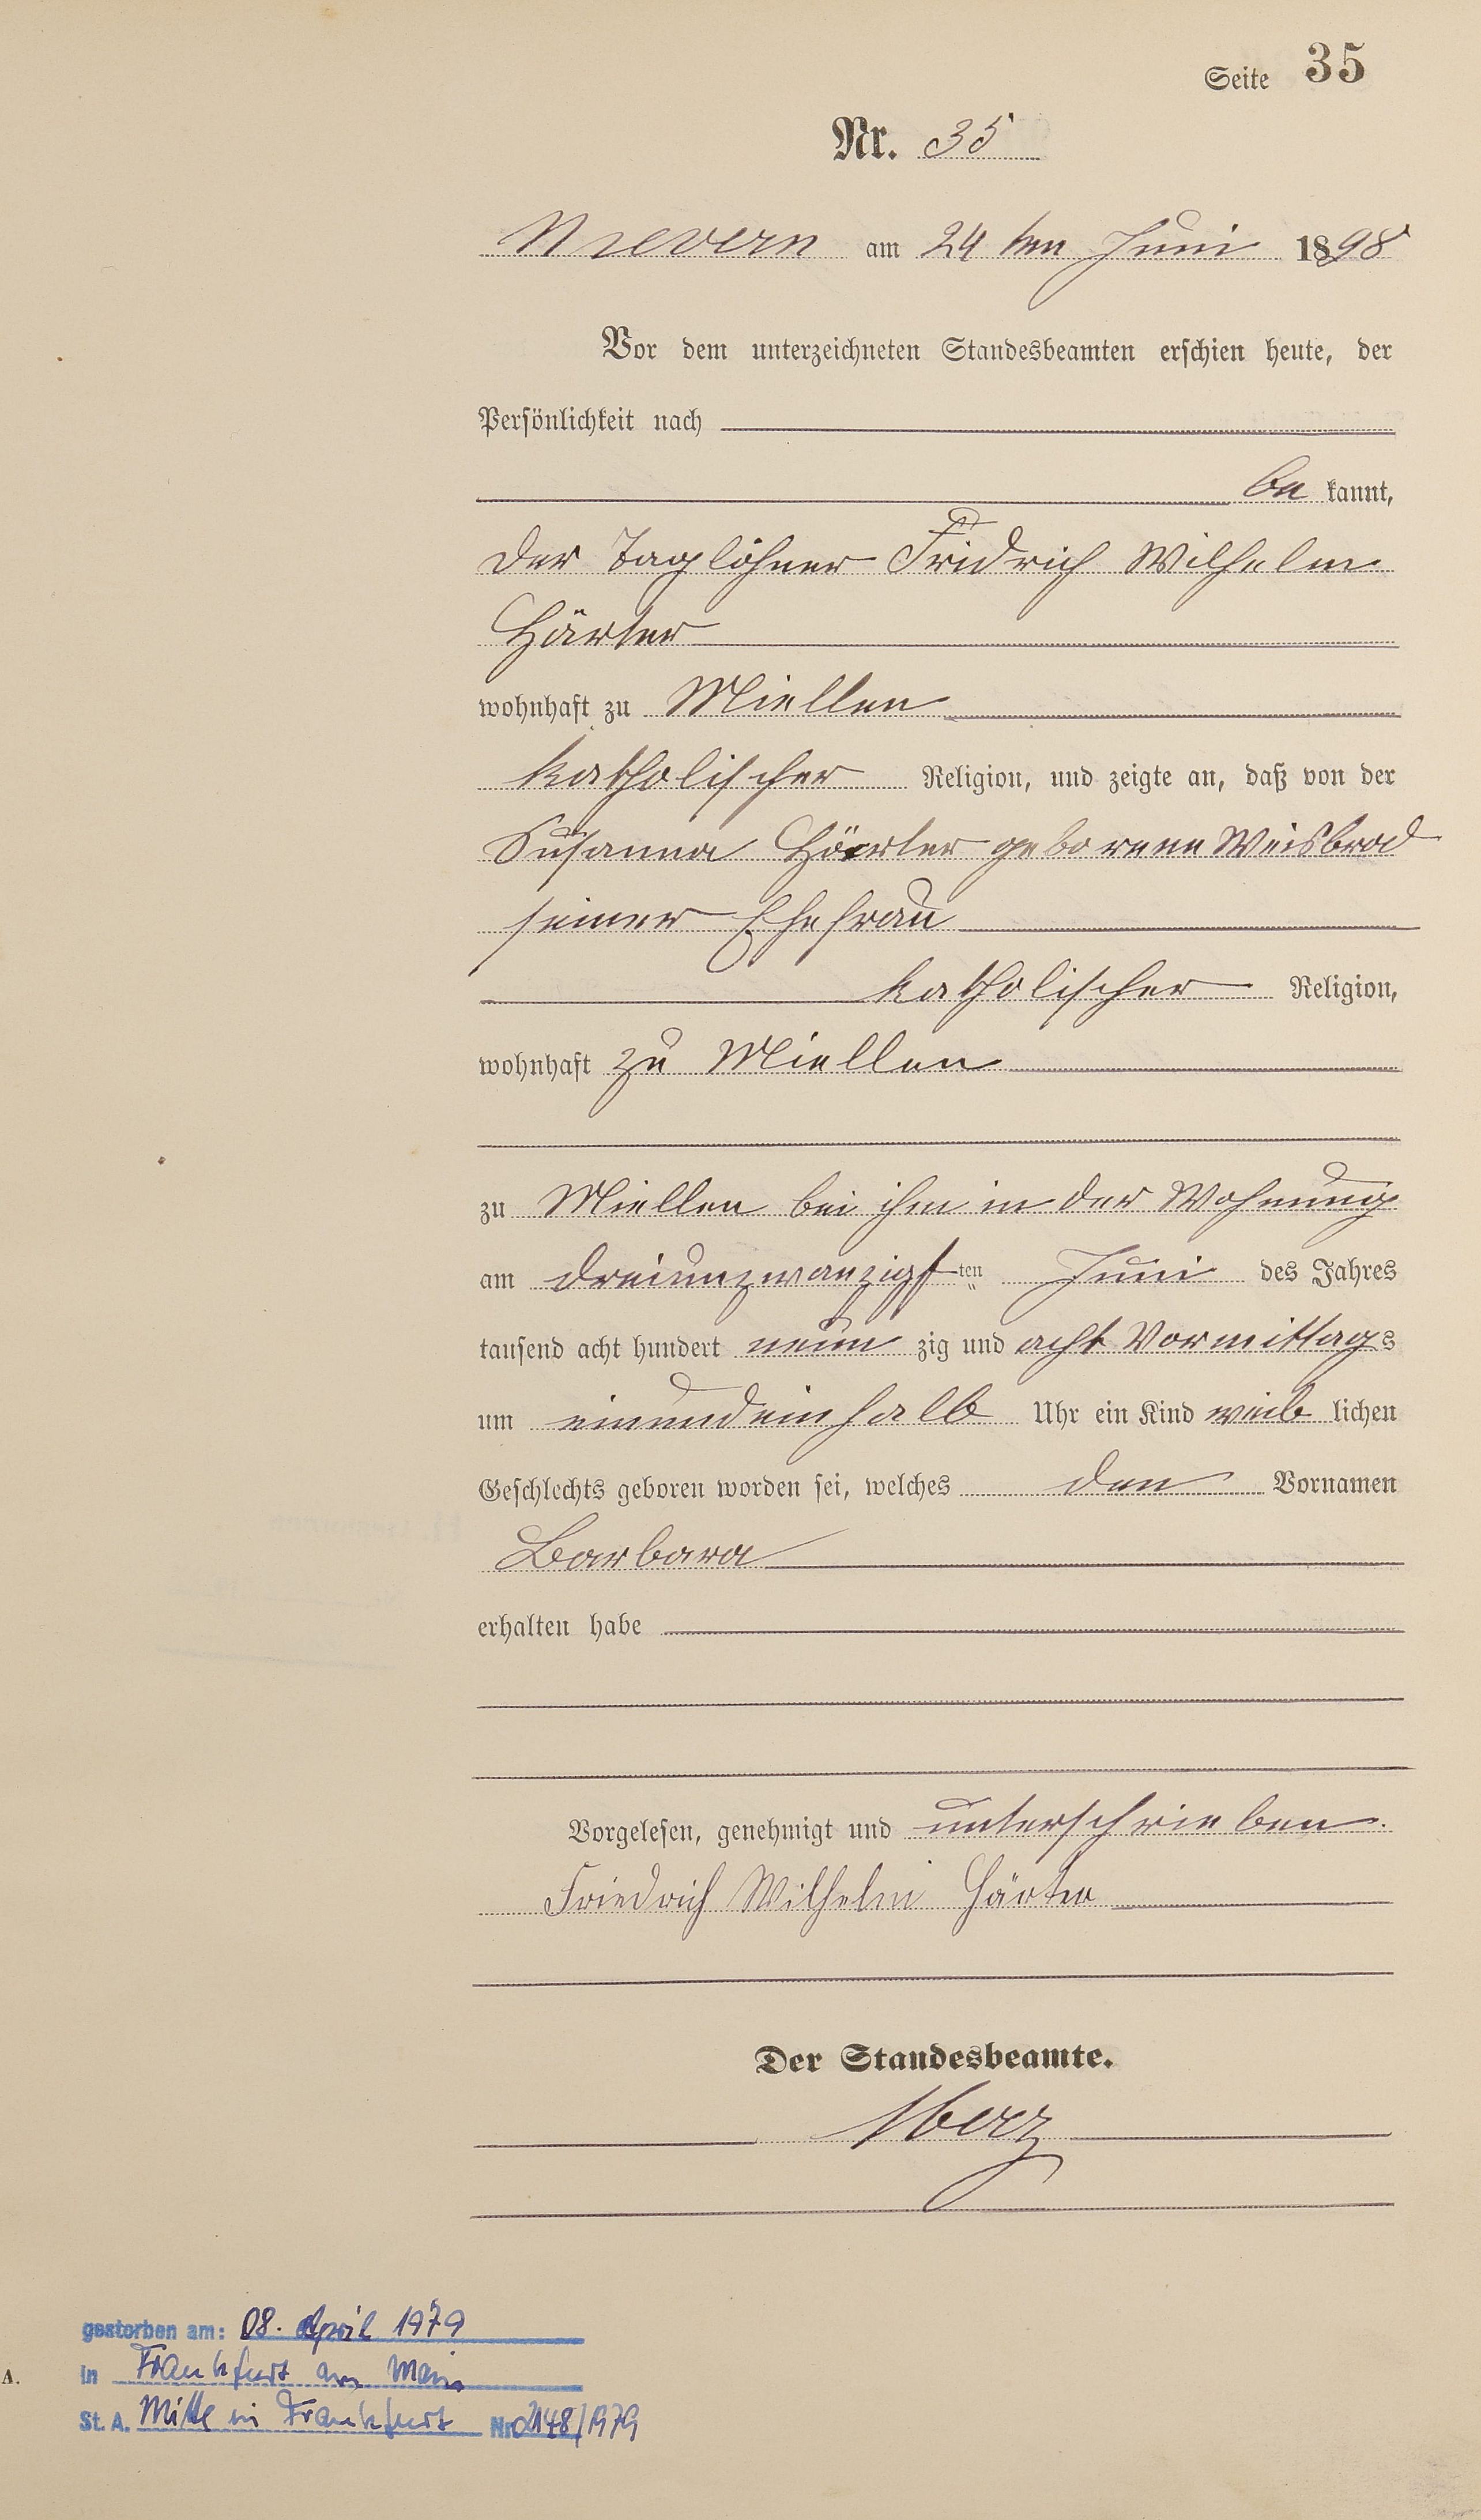 Seite 35
Nr. 35
Nievern am 24 ten Juni 1898
Vor dem unterzeichneten Standesbeamten erschien heute, der
Persönlichkeit nach
be kannt,
der Taglöhner Fridrich Wilhelm
Härter
wohnhaft zu Miellen
katholischer Religion, und zeigte an, daß von der
Susanna Härter geborene Weisbrod
seiner Ehefrau
katholischer Religion,
wohnhaft zu Miellen
zu Miellen bei ihm in der Wohnung
am dreiunzwanzigsten Juni des Jahres
tausend acht hundert neun zig und acht Vormittags
um einundeinhalb Uhr ein Kind weib lichen
Geschlechts geboren worden sei, welches den Vornamen
Barbara
erhalten habe
Vorgelesen, genehmigt und unterschrieben.
Friedrich Wilhelm Härter
Der Standesbeamte.
gestorben am: 08. April 1979
A. in Frankfurt am Main
St. A. Mitte in Frankfurt Nr. 2148/1979